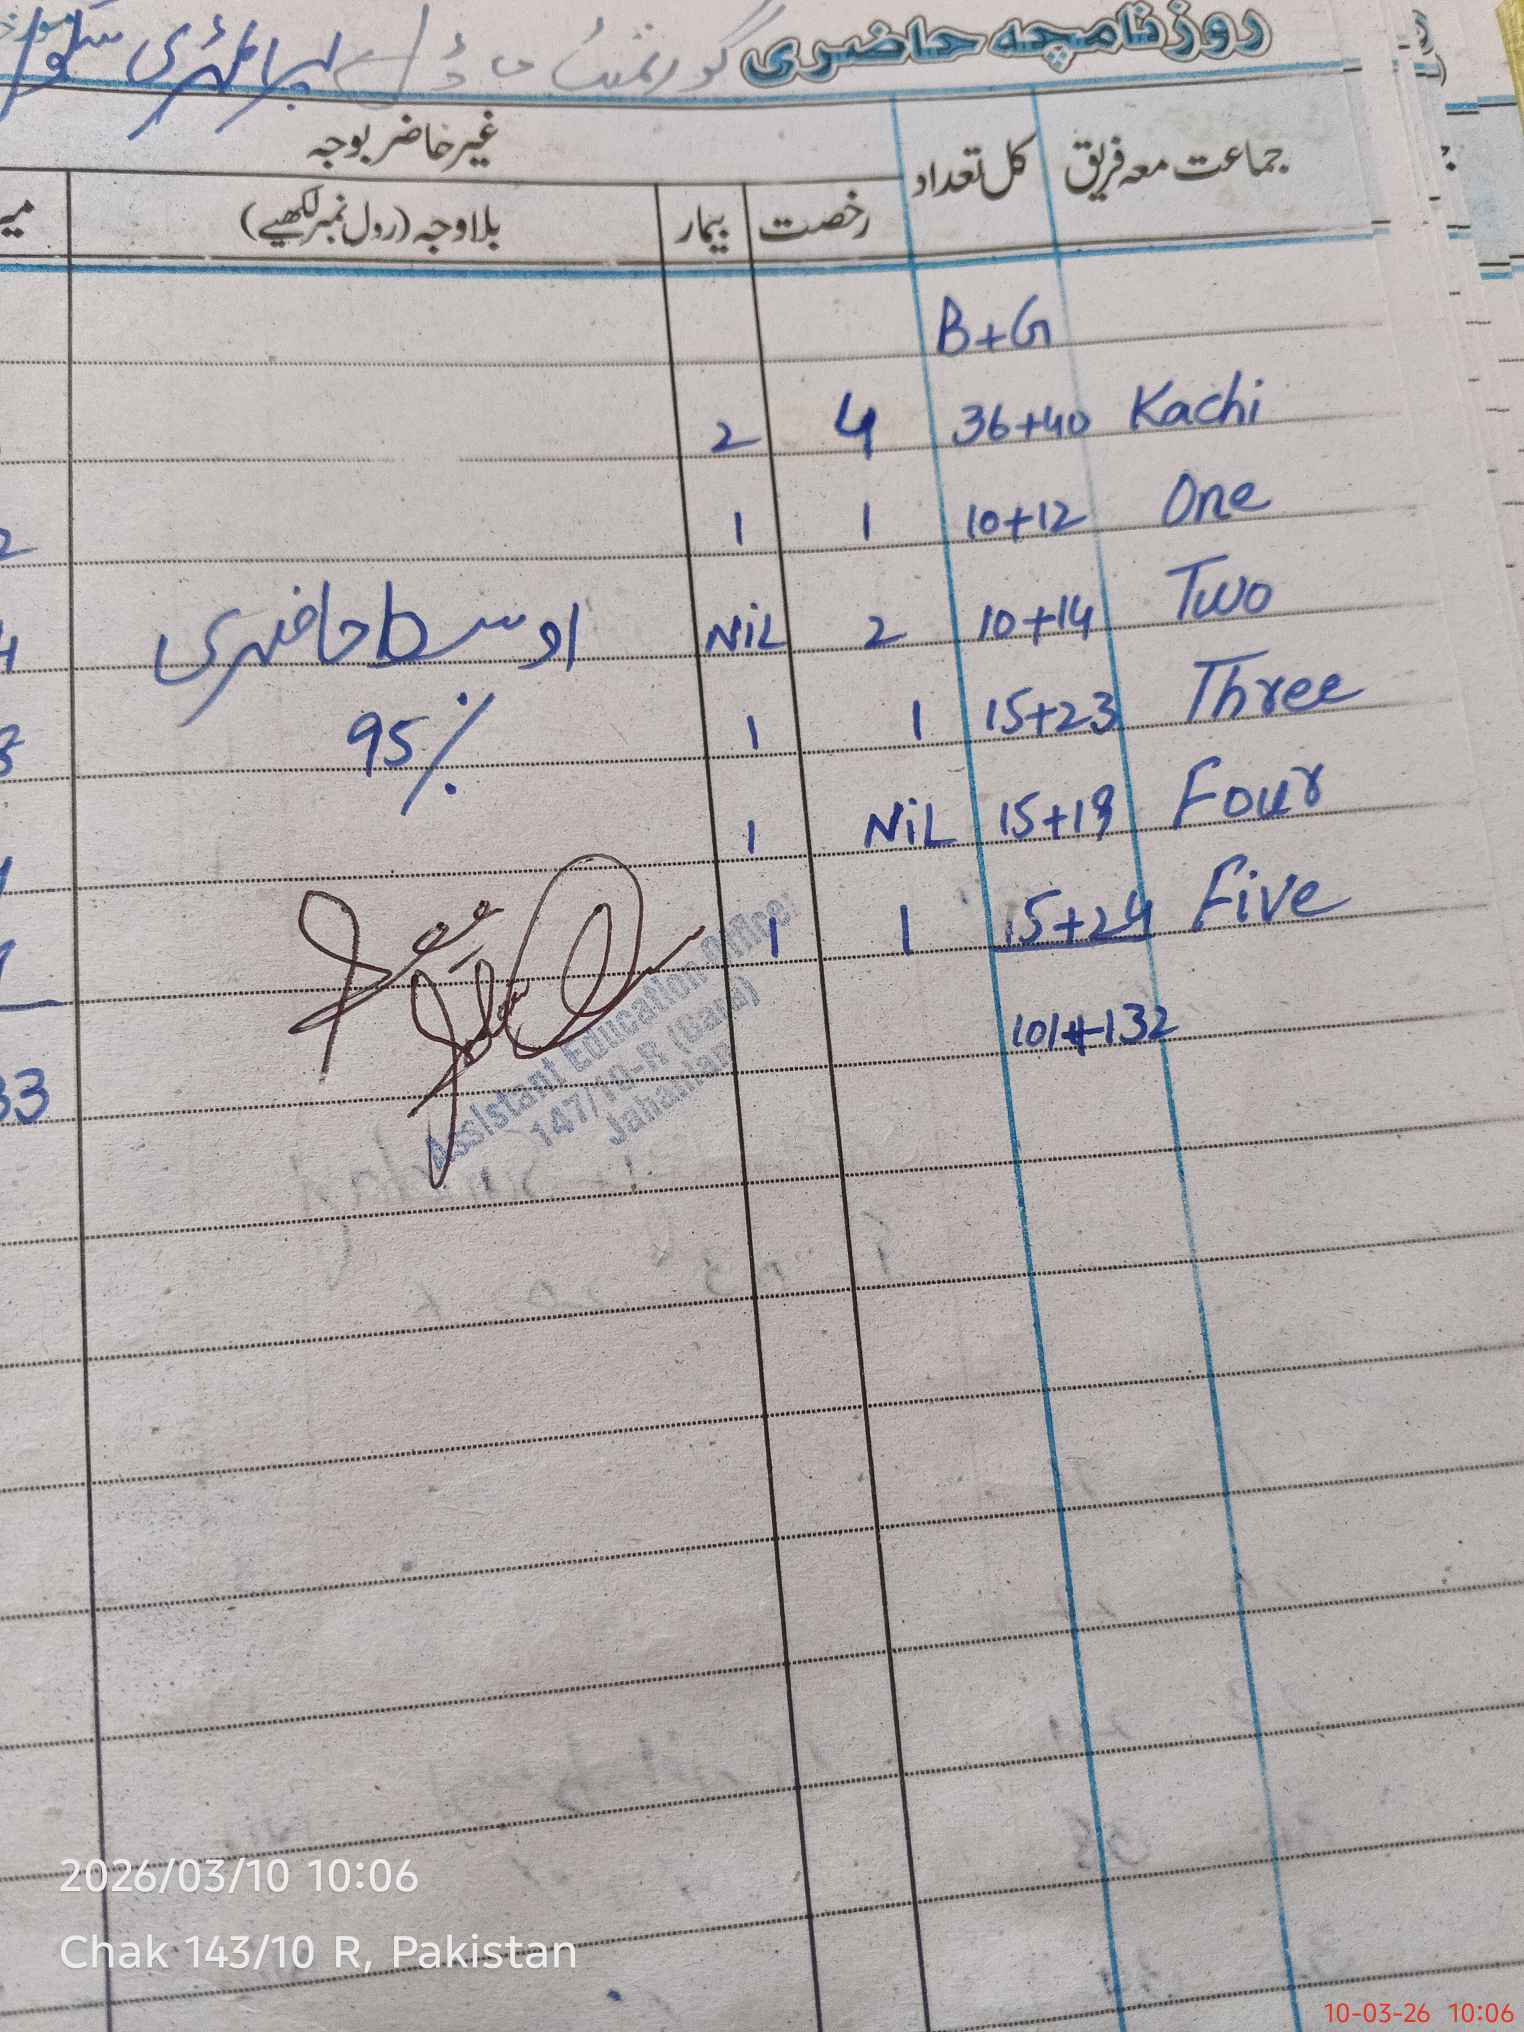 روزنامچہ حاضری گورنمنٹ ماڈل پرائمری سکول
جماعت معہ فریق کل تعداد غیر حاضر بوجہ
رخصت بیمار بلاوجہ (رول نمبر لکھیے)
B+G
Kachi 36+40 4 2
One 10+12 1 1
Two 10+14 2 NiL
اوسط حاضری
Three 15+23 1 1
95%
Four 15+19 NiL 1
Five 15+24 1 1
101+132
33
Assistant Education Officer
147/10-R (Gara)
Jahanian
2026/03/10 10:06
Chak 143/10 R, Pakistan
10-03-26 10:06